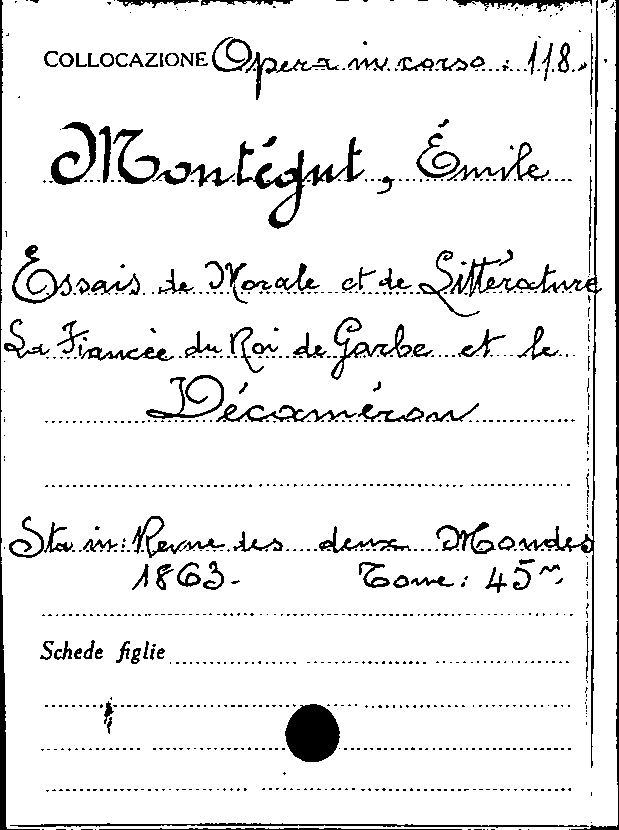 COLLOCAZIONE Opera in corso: 118.
Montégut, Émile
Essais de Morale et de Littérature
La Fiancée du Roi de Garbe et le
Décaméron
Sta in: Revue des deux Mondes
1863. Tome: 45m
Schede figlie